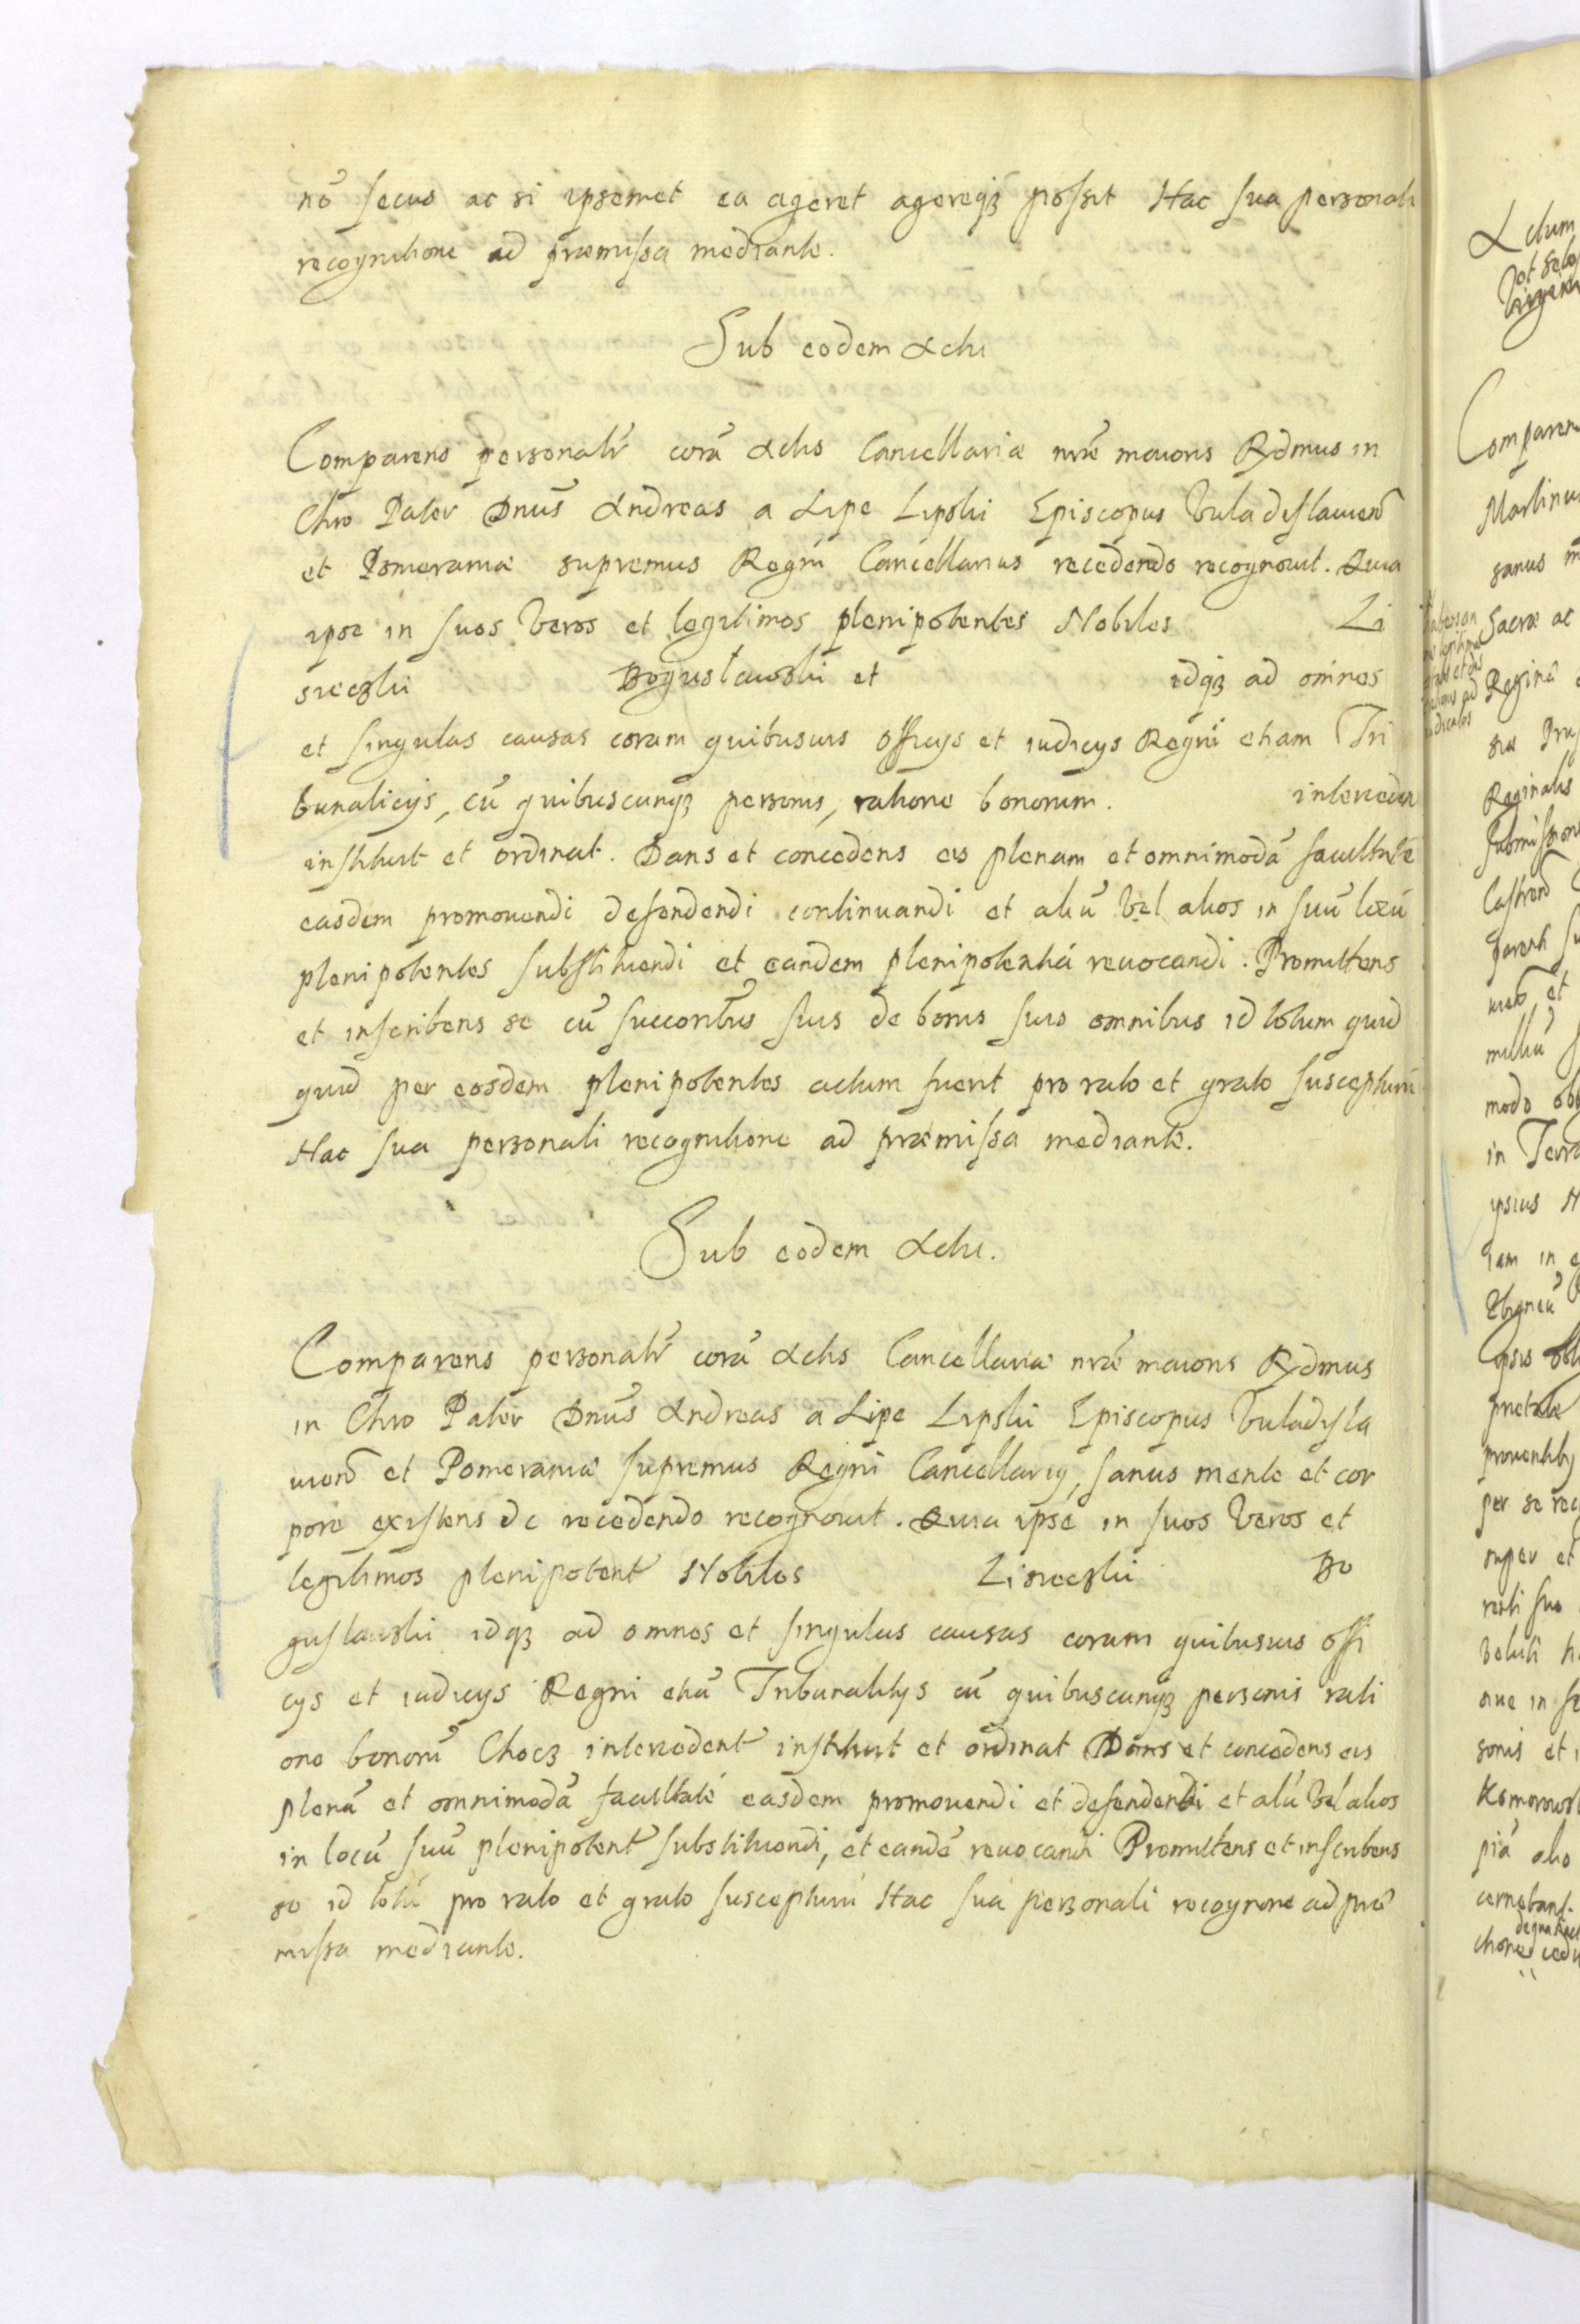 nō secus ac si ipsemet ea ageret agereqꝫ possit Hac sua personali
recognitione ad præmissa mediante.
Sub eodem Actu
Comparens personalr̄ corā Actis Cancellariæ nr̄æ maioris Rdmus in
Chro Pater Dnūs Andreas a Lipe Lipski Episcopus Vuladislauien̄
et Pomeraniæ supremus Regni Cancellarius recedendo recognouit. Quia
ipse in suos veros et legitimos plenipotentes Nobiles Li
sieczki Boguslawski et idqꝫ ad omnes
et singulas causas coram quibusuis officijs et iudicijs Regni etiam Tri
bunalicijs, cū quibuscunqꝫ personis, ratione bonorum. interceden
instituit et ordinat. Dans et concedens eis plenam et omnimodā facultatē
easdem promouendi defendendi continuandi et aliū vel alios in suū locū
plenipotentes substituendi et eandem plenipotentiā reuocandi. Promittens
et inscribens se cū succoribus suis de bonis suis omnibus id totum quid
quid per eosdem plenipotentes actum fuerit pro rato et grato suscepturū
Hac sua personali recognitione ad præmissa mediante.
Sub eodem Actu.
Comparens personalr̄ corā Actis Cancellariæ nr̄æ maioris Rdmus
in Chro Pater Dnūs Andreas a Lipe Lipski Episcopus Vuladisla
uien̄ et Pomeraniæ supremus Regni Cancellariꝯ, sanus mente et cor
pore existens de recedendo recognouit. Quia ipse in suos veros et
legitimos plenipotent Nobiles Lisieczki Bo
guslawski idqꝫ ad omnes et singulas causas coram quibusuis offi
cijs et iudicijs Regni etiā Tribunalitijs cū quibuscunqꝫ personis rati
one bonorū Chocz intercedent instituit et ordinat Dans et concedens eis
plenā et omnimodā facultatē easdem promouendi et defendendi et aliū vel alios
in locū suū plenipotent substituendi, et eandē reuocandi Promittens et inscribens
se id totū pro rato et grato suscepturū Hac sua personali recognitione ad præ
missa mediante.